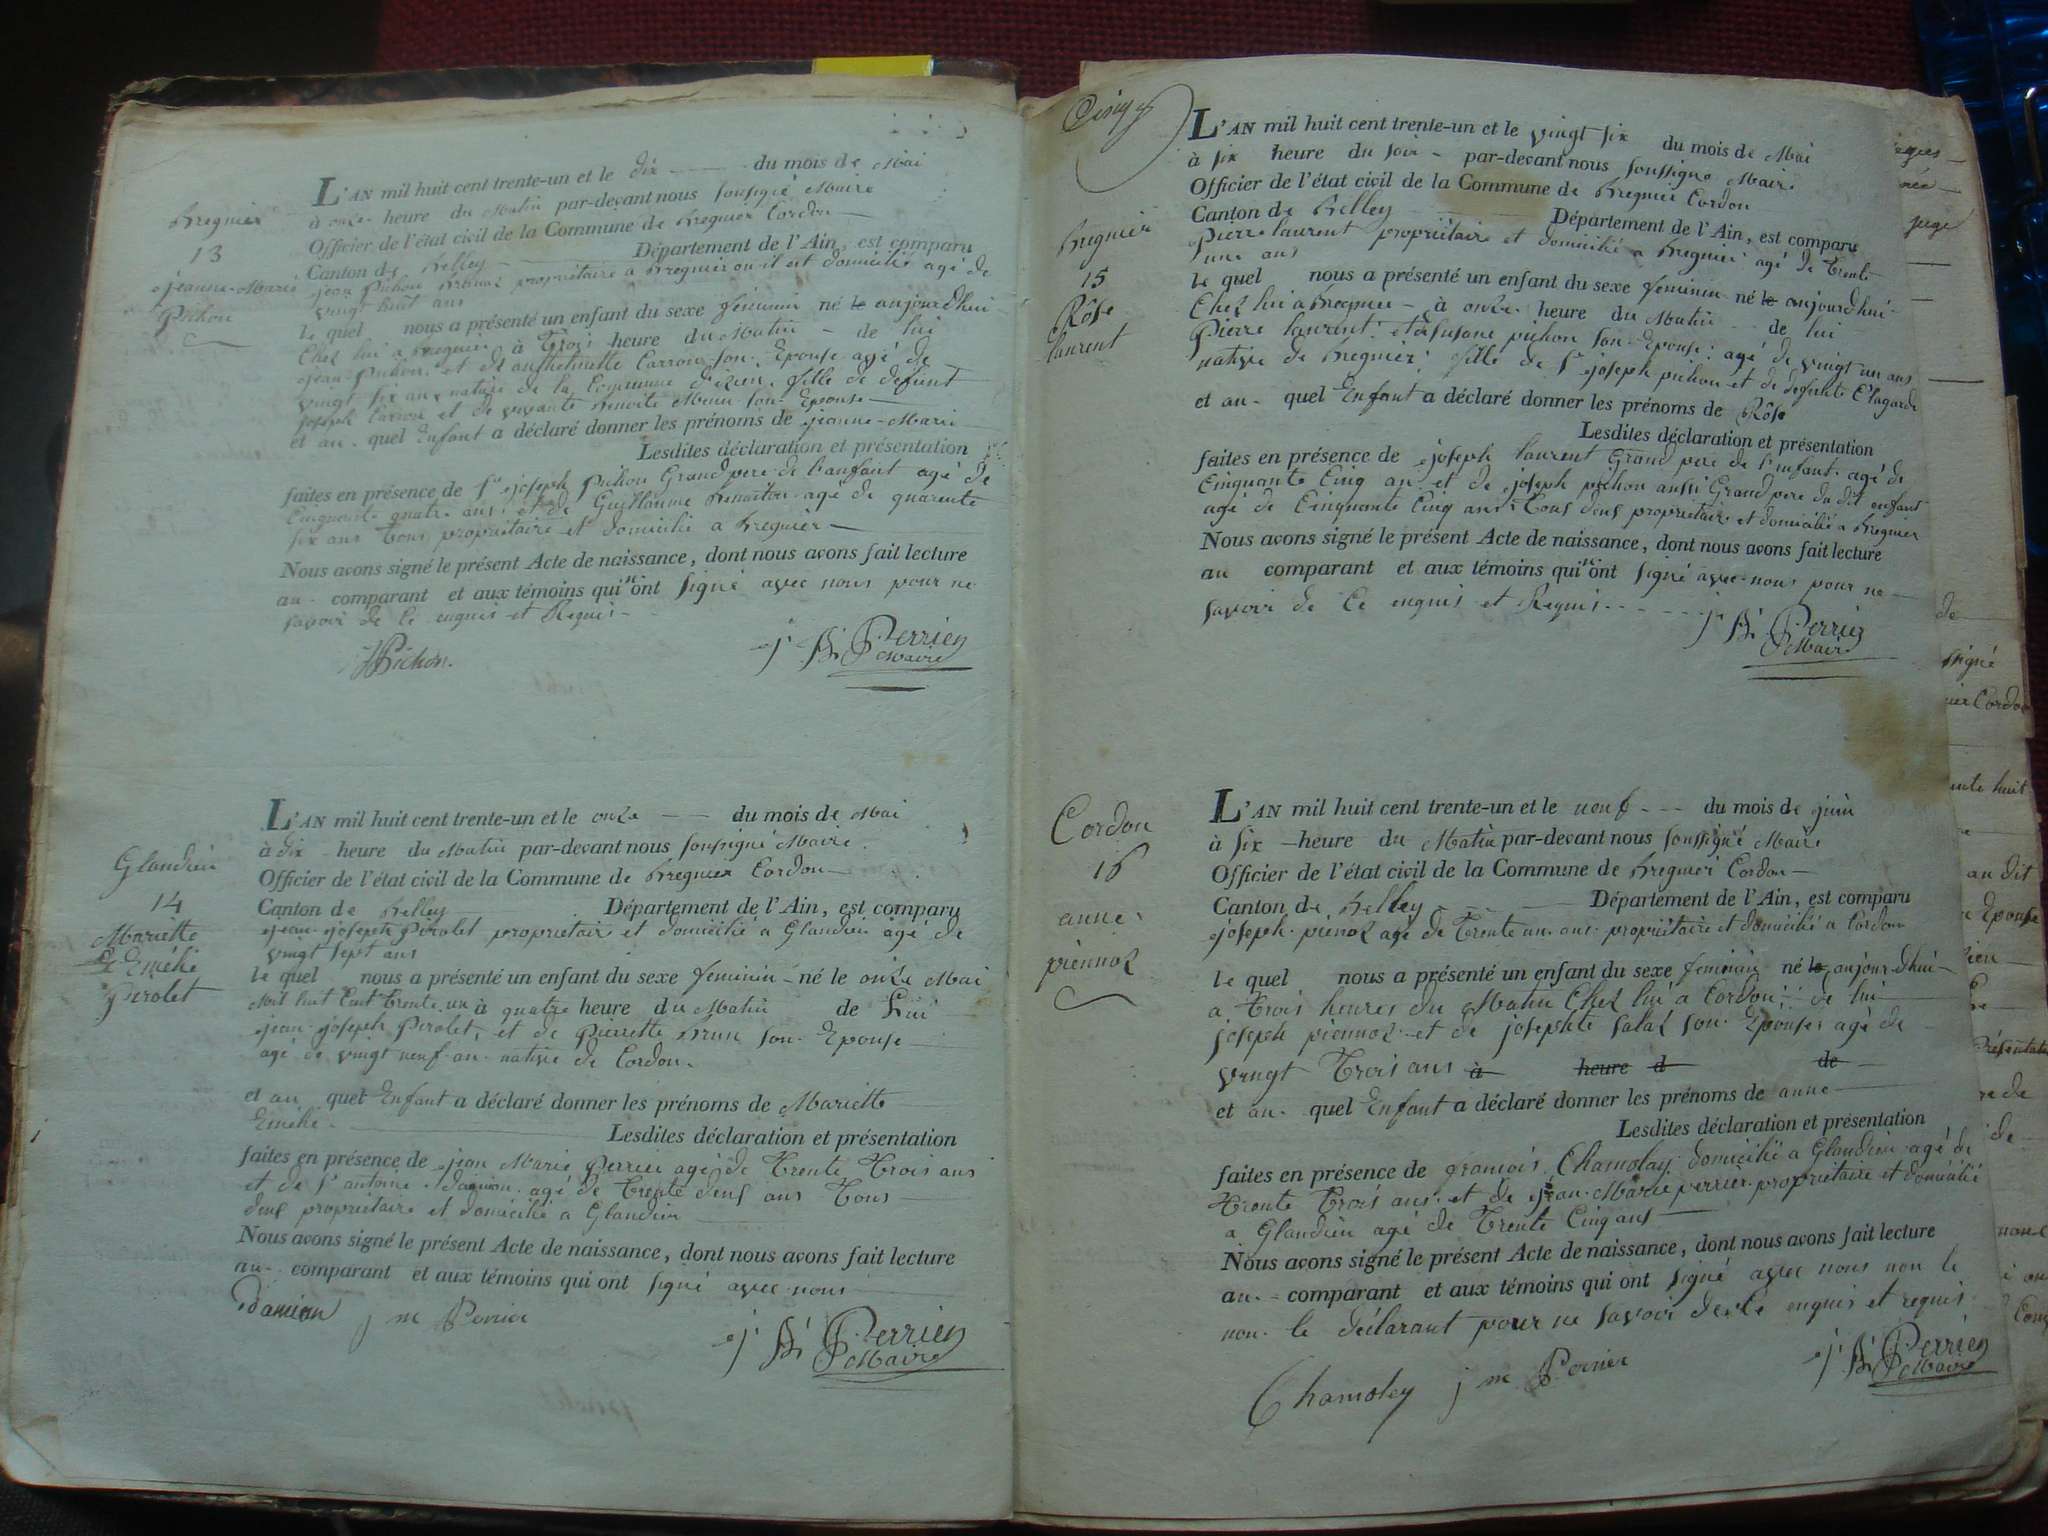 Bregnier
13
jeanne-Marie
Pichon
L'AN mil huit cent trente-un et le dix du mois de Mai
à onze heure du Matin par-devant nous soussigné Maire
Officier de l'état civil de la Commune de Bregnier Cordon
Canton de Belley Département de l'Ain, est comparu
jean Pichon propriétaire a Bregnier ou il est domicilié agé de
vingt huit ans
le quel nous a présenté un enfant du sexe feminin né le aujourd'hui
Chez lui a Bregnier à Trois heure du Matin de lui
jean Pichon et de anthelmette Carron son Epouse agé de
vingt six ans native de la Commune d'izieu fille de defunt
joseph Carron et de vivante benoite son Epouse
et au quel Enfant a déclaré donner les prénoms de jeanne-Marie
Lesdites déclaration et présentation
faites en présence de Sr joseph Pichon Grand pere de l'anfant agé de
Cinquante quatre ans et de Guillaume agé de quarente
six ans Tous propriétaire et domicilié a Bregnier
Nous avons signé le présent Acte de naissance, dont nous avons fait lecture
au comparant et aux témoins qui n'ont signé avec nous pour ne
savoir de Ce enquis et Requis
JPichon. j. B. Perrier
Maire
Glandieu
14
Mariette
Emélie
Perolet
L'AN mil huit cent trente-un et le onze du mois de Mai
à dix heure du Matin par-devant nous soussigné Maire
Officier de l'état civil de la Commune de Bregnier Cordon
Canton de Belley Département de l'Ain, est comparu
jean joseph Perolet propriétaire et domicilié a Glandieu agé de
vingt sept ans
le quel nous a présenté un enfant du sexe feminin né le onze Mai
Mil huit Cent Trente un à quatre heure du Matin de Lui
jean joseph Perolet, et de Pierrette Brun son Epouse
agé de vingt neuf an native de Cordon.
et au quel Enfant a déclaré donner les prénoms de Mariette
Emélie Lesdites déclaration et présentation
faites en présence de jean Marie Perrier agé de Trente Trois ans
et de Sr antoine damian agé de Trente deus ans Tous
deus propriétaire et domicilié a Glandieu
Nous avons signé le présent Acte de naissance, dont nous avons fait lecture
au comparant et aux témoins qui ont signé avec nous
Damian j m Perrier
j. B. Perrier
Maire
Bregnier
15
Rôse
laurent
L'AN mil huit cent trente-un et le vingt six du mois de Mai
à six heure du soir par-devant nous soussigné Maire
Officier de l'état civil de la Commune de Bregnier Cordon
Canton de Belley Département de l'Ain, est comparu
Pierre laurent propriétaire et domicilié a Bregnier agé de Trente
une ans
le quel nous a présenté un enfant du sexe feminin né le aujourd'hui
Chez lui a Bregnier à onze heure du Matin de lui
Pierre laurent et de susane pichon son Epouse agé de vingt un ans
native de Bregnier fille de Sr joseph pichon et de defunte
et au quel Enfant a déclaré donner les prénoms de Rôse
Lesdites déclaration et présentation
faites en présence de joseph laurent Grand pere de l'enfant agé de
Cinquante Cinq an et de joseph pichon aussi Grand pere du dit enfant
agé de Cinquante Cinq ans Tous deus propriétaire et domicilié a Bregnier
Nous avons signé le présent Acte de naissance, dont nous avons fait lecture
au comparant et aux témoins qui n'ont signé avec nous pour ne
savoir de Ce enquis et Requis
j. B. Perrier
Maire
Cordon
16
anne
piennoz
L'AN mil huit cent trente-un et le neuf du mois de juin
à six heure du Matin par-devant nous soussigné Maire
Officier de l'état civil de la Commune de Bregnier Cordon
Canton de Belley Département de l'Ain, est comparu
joseph piénoz agé de Trente un ans propriétaire et domicilié a Cordon
le quel nous a présenté un enfant du sexe feminin né le aujourd'hui
a Trois heures du Matin Chez lui a Cordon de lui
joseph piennoz et de josephte salaz son Epouse agé de
vingt Trois ans à heure d de
et au quel Enfant a déclaré donner les prénoms de anne
Lesdites déclaration et présentation
faites en présence de francois Chamoley domicilié a Glandieu agé de
Trente Trois ans et de jean Marie perrier propriétaire et domicilié
a Glandieu agé de Trente Cinq ans
Nous avons signé le présent Acte de naissance, dont nous avons fait lecture
au comparant et aux témoins qui ont signé avec nous non le
non le déclarant pour ne savoir de Ce enquis et requis
Chamoley j m Perrier j. B. Perrier
Maire